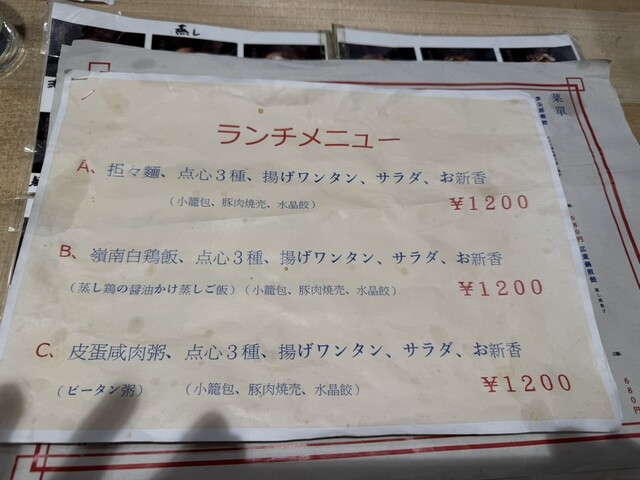 蒸し
ランチメニュー
A、担々麺、点心３種、揚げワンタン、サラダ、お新香
（小籠包、豚肉焼売、水晶餃）
￥１２００
B、嶺南白鶏飯、点心３種、揚げワンタン、サラダ、お新香
（蒸し鶏の醤油かけ蒸しご飯）（小籠包、豚肉焼売、水晶餃）
￥１２００
C、皮蛋咸肉粥、点心３種、揚げワンタン、サラダ、お新香
（ピータン粥）　（小籠包、豚肉焼売、水晶餃）
￥１２００
菜單
６８０円